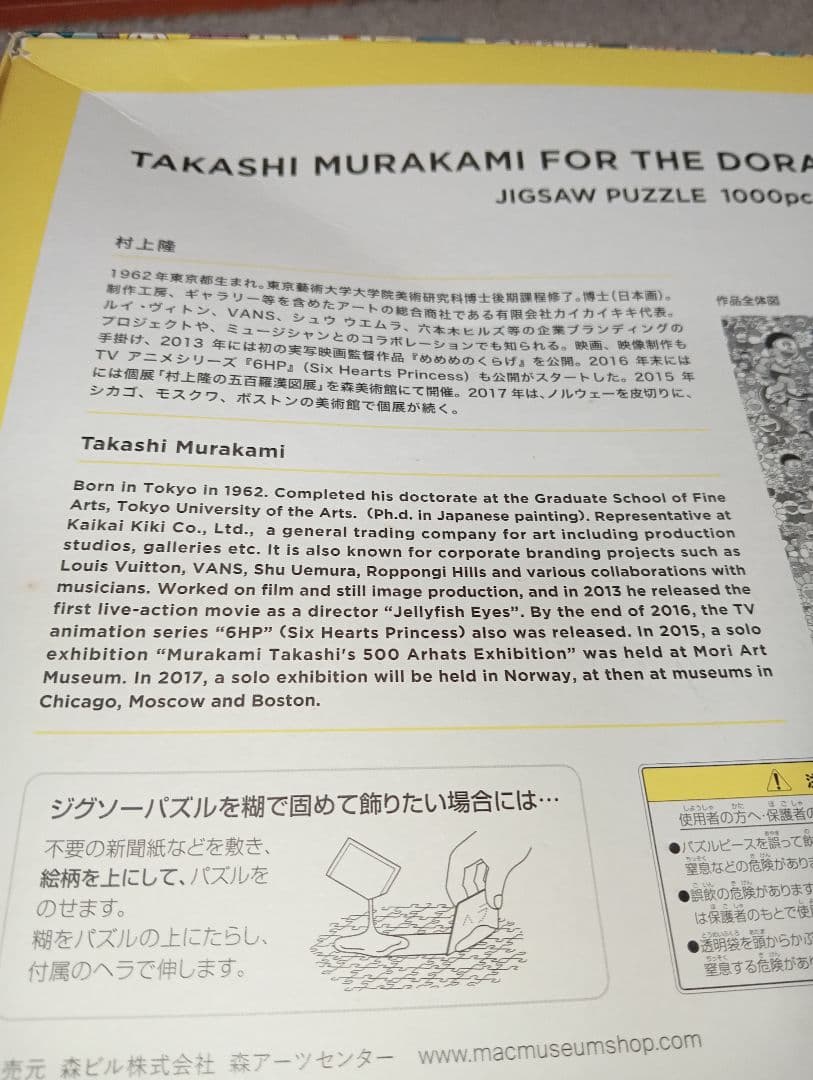 TAKASHI MURAKAMI FOR THE DORA
JIGSAW PUZZLE 1000pc
村上隆
1962年東京都生まれ。東京藝術大学大学院美術研究科博士後期課程修了。博士（日本画）。
制作工房、ギャラリー等を含めたアートの総合商社である有限会社カイカイキキ代表。
ルイ・ヴィトン、VANS、シュウ ウエムラ、六本木ヒルズ等の企業ブランディングの
プロジェクトや、ミュージシャンとのコラボレーションでも知られる。映画、映像制作も
手掛け、2013 年には初の実写映画監督作品『めめめのくらげ』を公開。2016 年末には
TV アニメシリーズ『6HP』（Six Hearts Princess）も公開がスタートした。2015 年
には個展「村上隆の五百羅漢図展」を森美術館にて開催。2017年は、ノルウェーを皮切りに、
シカゴ、モスクワ、ボストンの美術館で個展が続く。
作品全体図
Takashi Murakami
Born in Tokyo in 1962. Completed his doctorate at the Graduate School of Fine
Arts, Tokyo University of the Arts. (Ph.d. in Japanese painting). Representative at
Kaikai Kiki Co., Ltd., a general trading company for art including production
studios, galleries etc. It is also known for corporate branding projects such as
Louis Vuitton, VANS, Shu Uemura, Roppongi Hills and various collaborations with
musicians. Worked on film and still image production, and in 2013 he released the
first live-action movie as a director “Jellyfish Eyes”. By the end of 2016, the TV
animation series “6HP” (Six Hearts Princess) also was released. In 2015, a solo
exhibition “Murakami Takashi's 500 Arhats Exhibition” was held at Mori Art
Museum. In 2017, a solo exhibition will be held in Norway, at then at museums in
Chicago, Moscow and Boston.
ジグソーパズルを糊で固めて飾りたい場合には…
不要の新聞紙などを敷き、
絵柄を上にして、パズルを
のせます。
糊をパズルの上にたらし、
付属のヘラで伸します。
使用者の方へ・保護者の
●パズルピースを誤って飲
窒息などの危険があり
●誤飲の危険があります
は保護者のもとで使
●透明袋を頭からかぶ
窒息する危険があ
売元 森ビル株式会社 森アーツセンター www.macmuseumshop.com